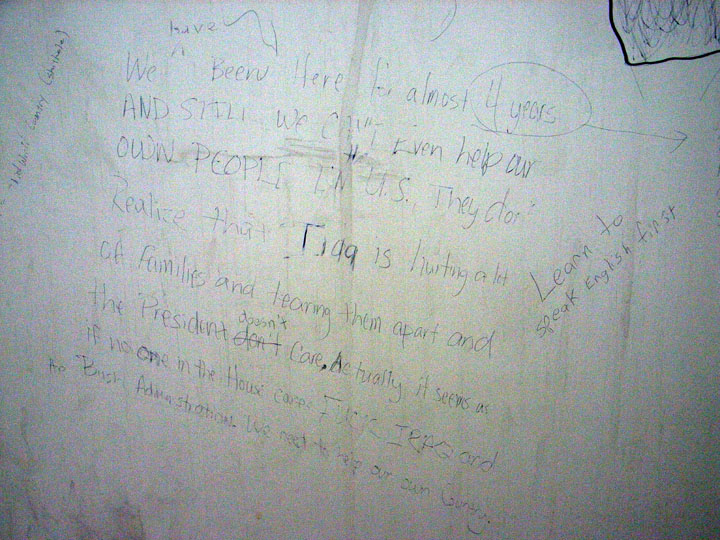 have
We Been Here for almost 4 years
AND STILL we can't Even help our
OWN PEOPLE IN the U.S. They don't
Realize that Iraq is hurting a lot
of families and tearing them apart and
the President don't doesn't Care. Actually it seems as
if no one in the House cares. FUCK IRAQ and
the Bush Administration. We need to help our own Country.
Learn to
speak English first